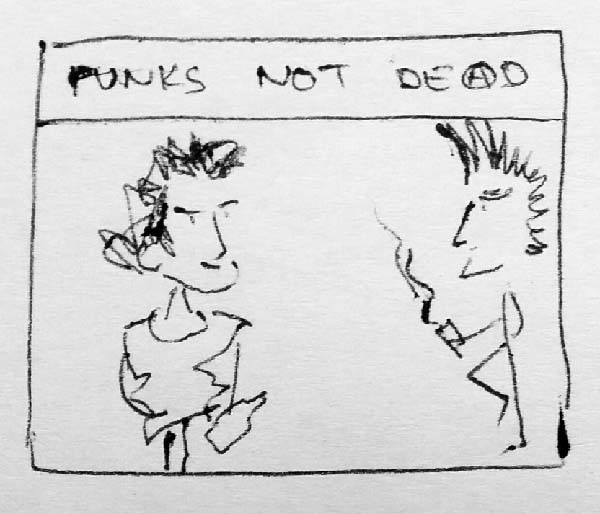 PUNKS NOT DEAD